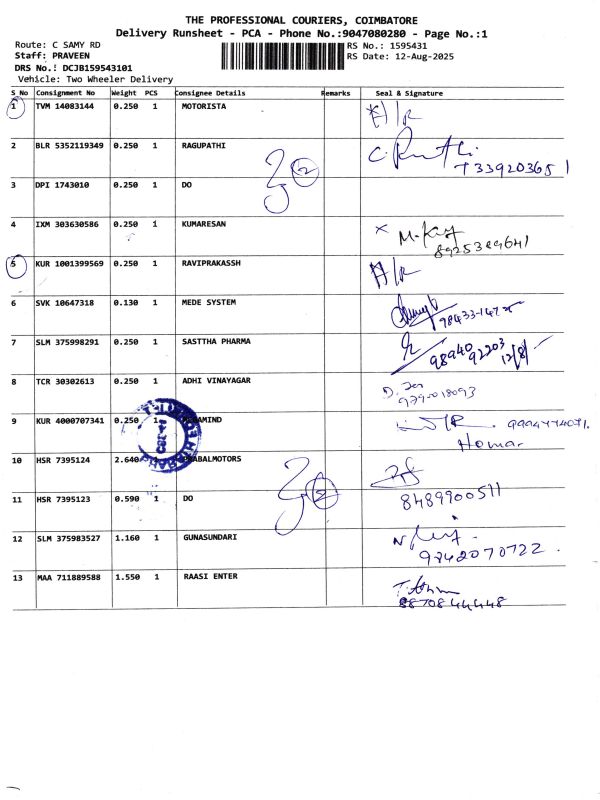 THE PROFESSIONAL COURIERS, COIMBATORE
Delivery Runsheet - PCA - Phone No.:9047080280 - Page No.:1
Route: C SAMY RD
RS No.: 1595431
Staff: PRAVEEN
RS Date: 12-Aug-2025
DRS No.: DCJB159543101
Vehicle: Two Wheeler Delivery
S_No Consignment No Weight PCS Consignee Details Remarks Seal & Signature
1 TVM 14083144 0.250 1 MOTORISTA
2 BLR 5352119349 0.250 1 RAGUPATHI
2
3 DPI 1743010 0.250 1 DO
4 IXM 303630586 0.250 1 KUMARESAN
8925389641
5 KUR 1001399569 0.250 1 RAVIPRAKASSH
6 SVK 10647318 0.130 1 MEDE SYSTEM
7 SLM 375998291 0.250 1 SASTTHA PHARMA
98940 92203
12/8/
8 TCR 30302613 0.250 1 ADHI VINAYAGAR
9 KUR 4000707341 0.250 1
10 HSR 7395124 2.640
8489900511
11 HSR 7395123 0.590 1 DO
2
12 SLM 375983527 1.160 1 GUNASUNDARI
9842070722
13 MAA 711889588 1.550 1 RAASI ENTER
8870844448